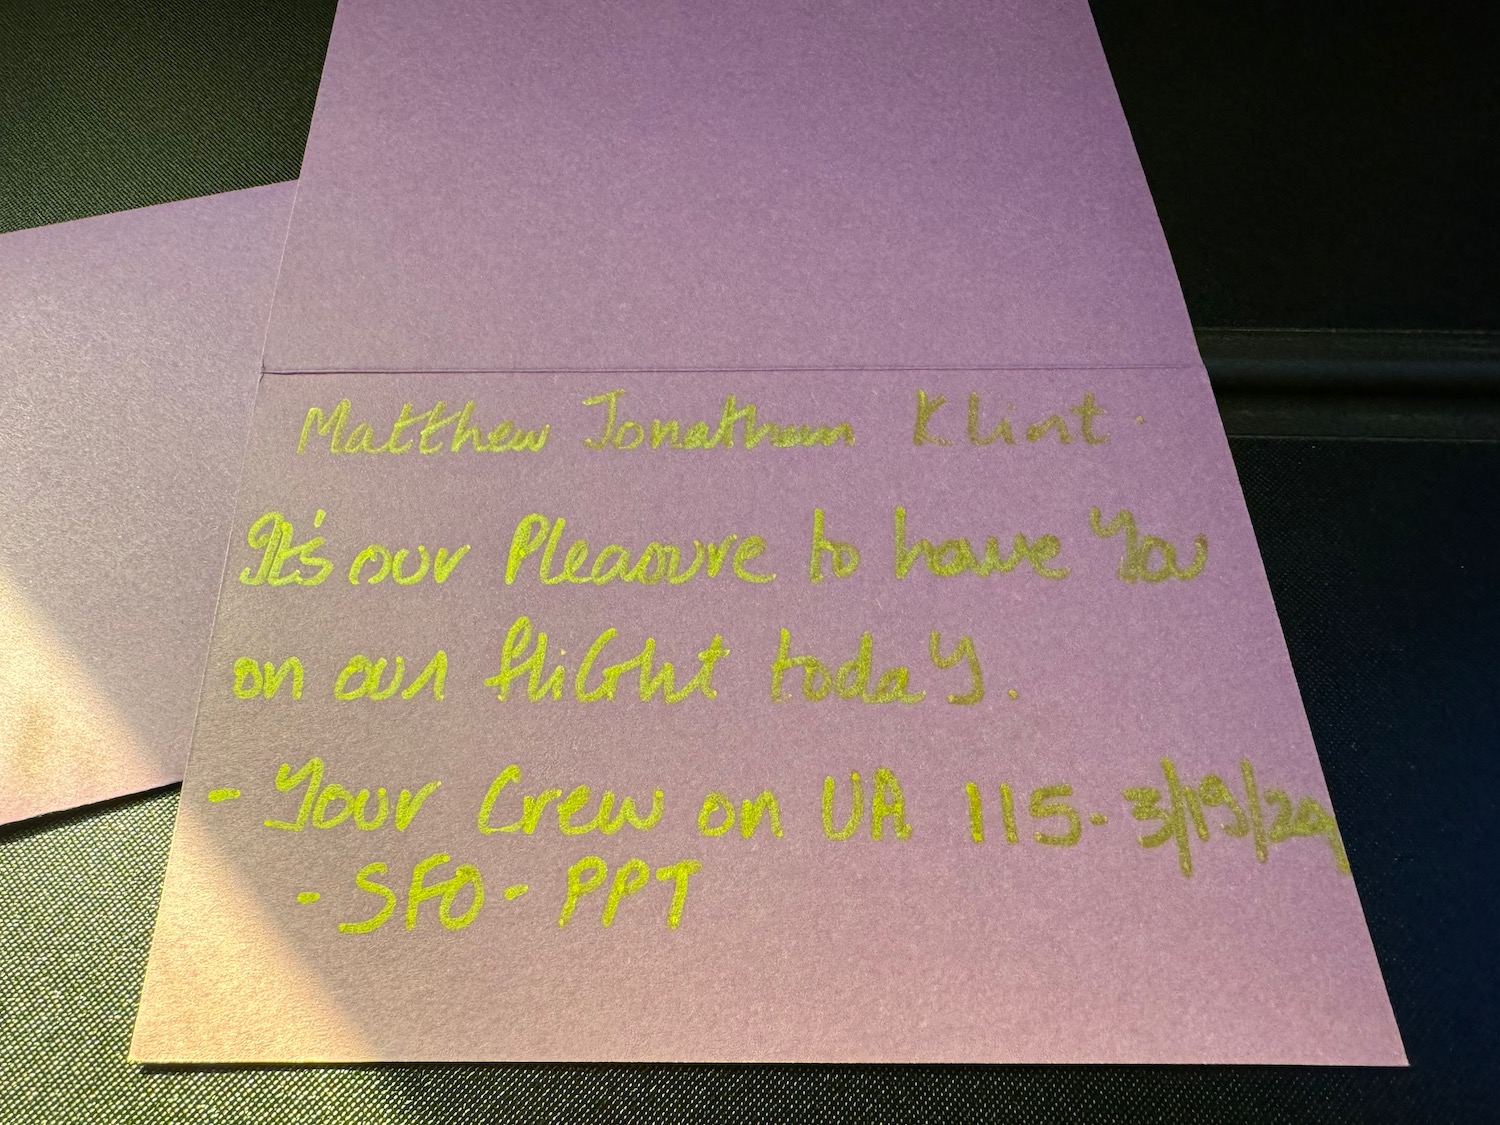 Matthew Jonathan Klint.
It's our Pleasure to have You
on our fliGht today.
- Your Crew on UA 115 - 3/19/24
- SFO - PPT